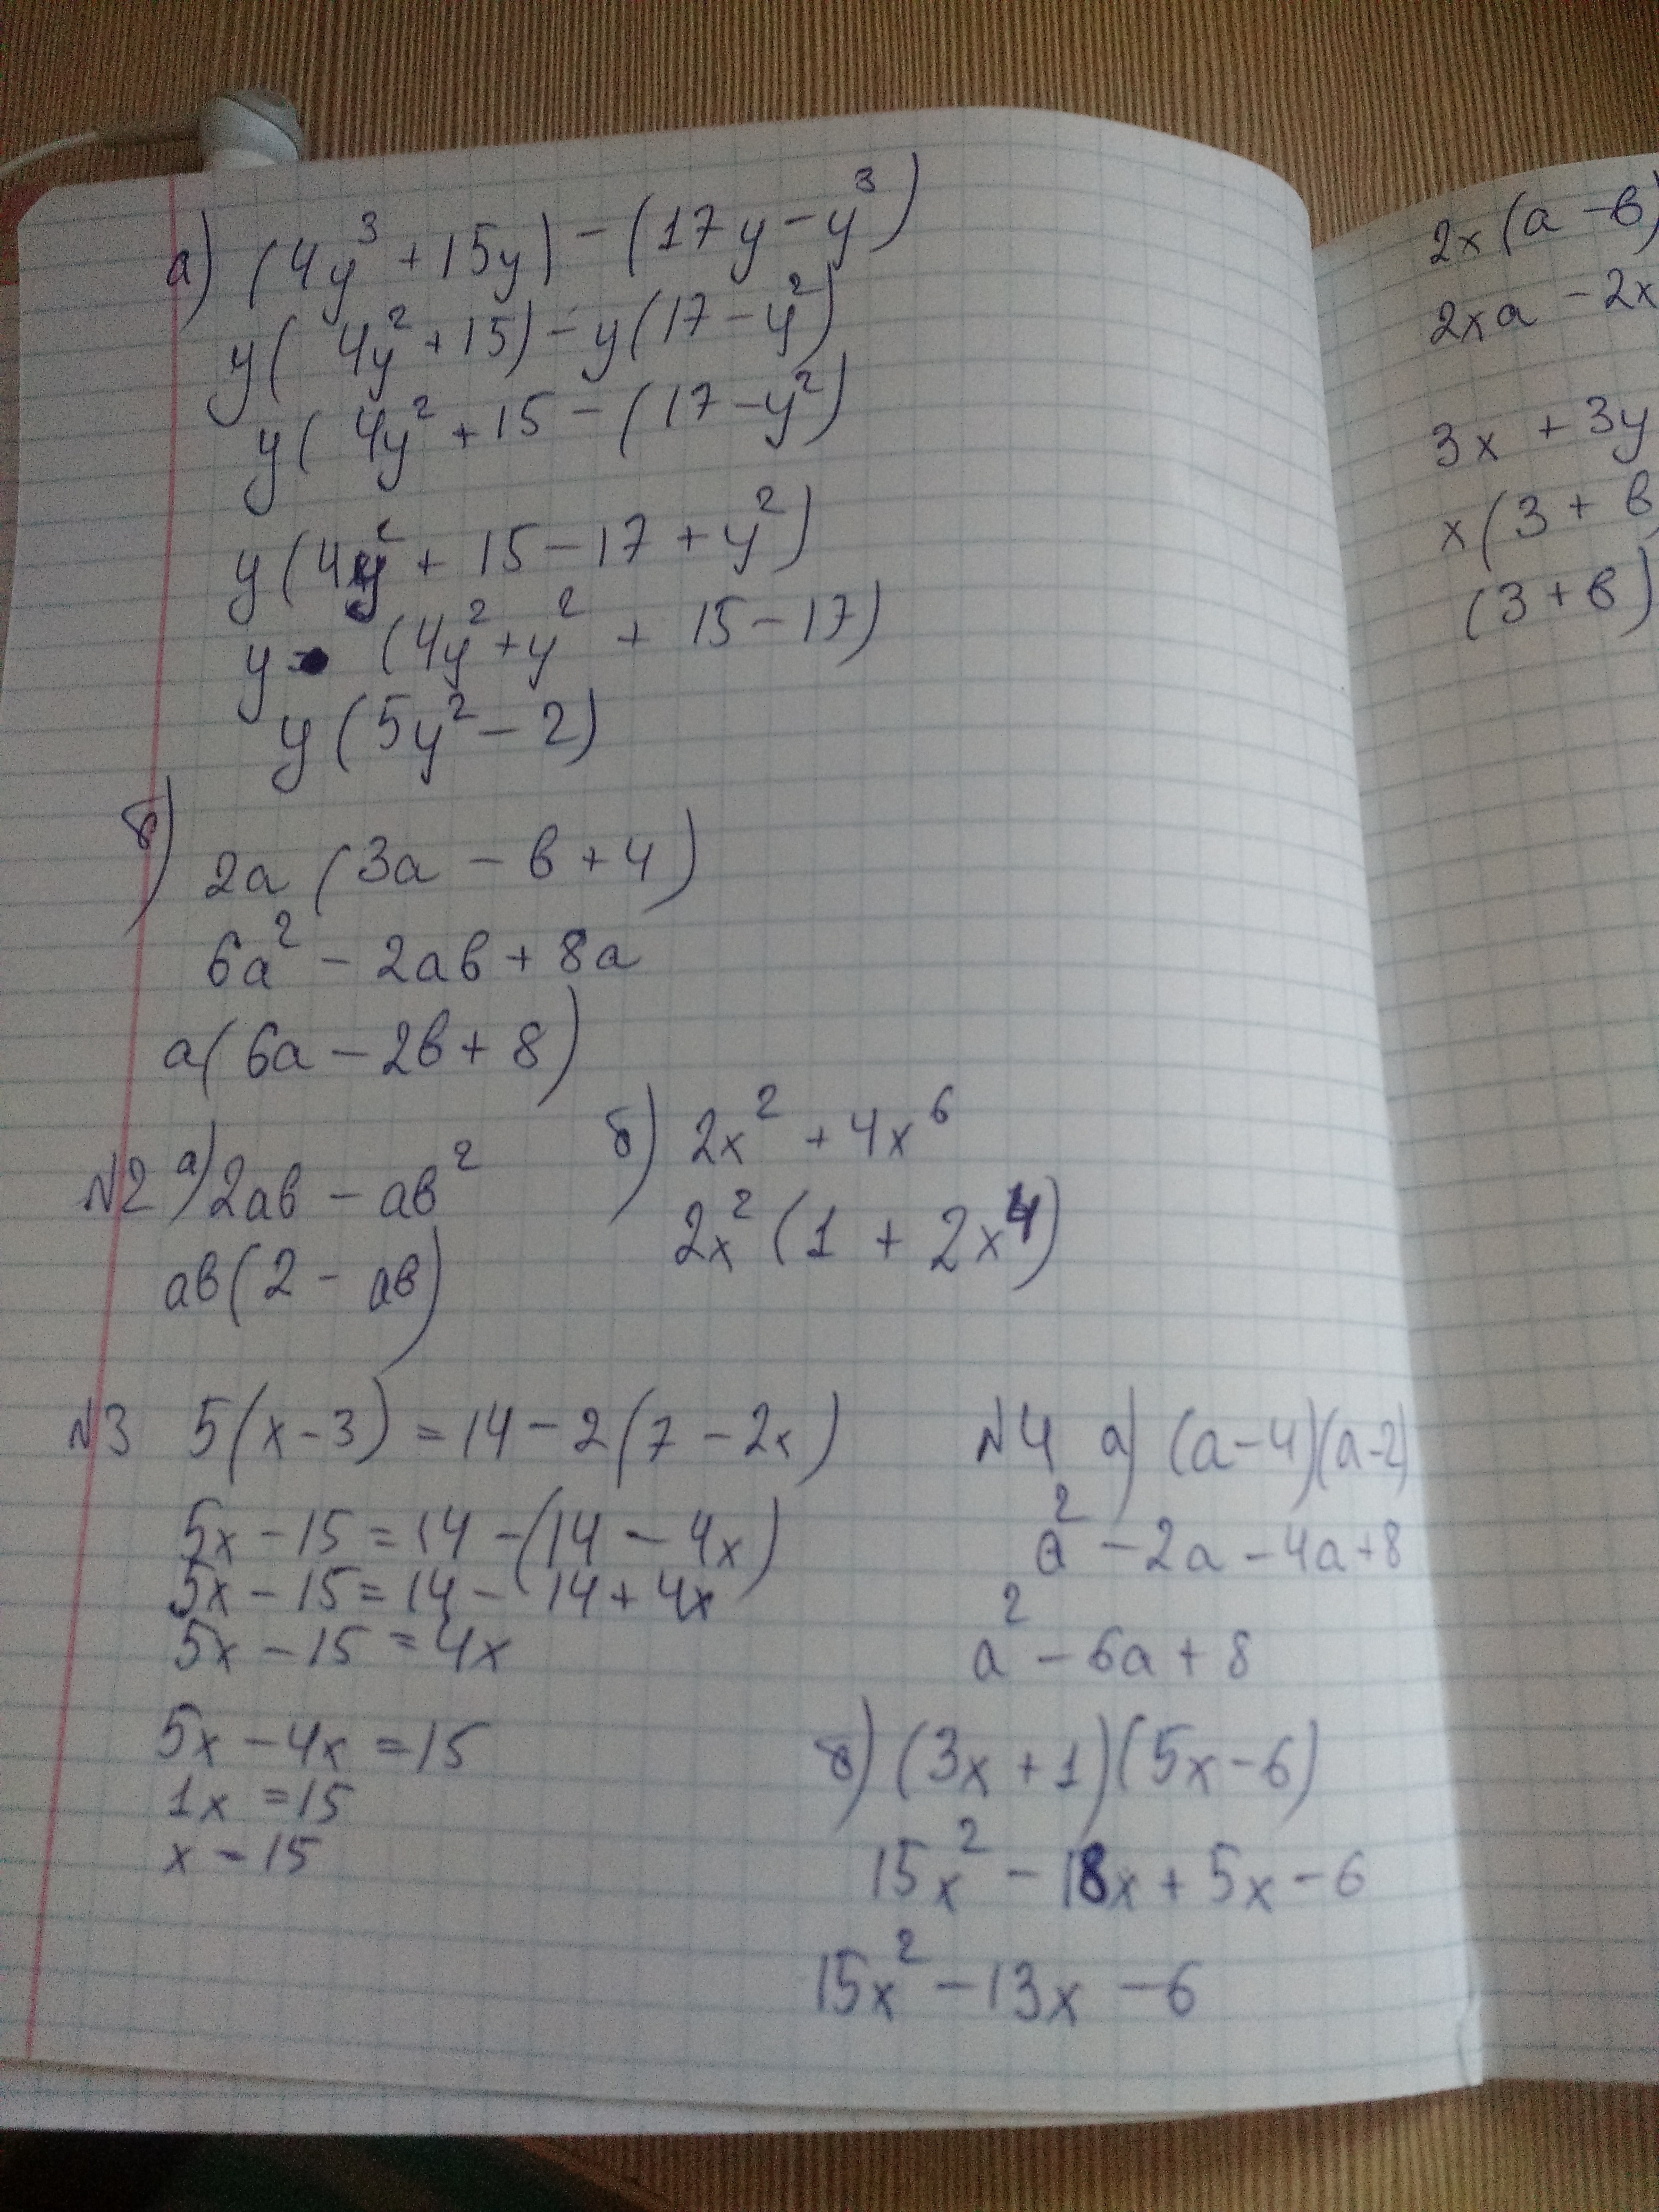 а) (4y³ + 15y) - (17y - y³)
y(4y² + 15) - y(17 - y²)
y(4y² + 15 - (17 - y²)
y(4y² + 15 - 17 + y²)
y (4y² + y² + 15 - 17)
y(5y² - 2)
б)
2a(3a - в + 4)
6a² - 2aв + 8a
a(6a - 2в + 8)
№2 а) 2aв - aв²
aв(2 - aв)
б) 2x² + 4x⁶
2x²(1 + 2x⁴)
№3 5(x - 3) = 14 - 2(7 - 2x)
5x - 15 = 14 - (14 - 4x)
5x - 15 = 14 - 14 + 4x
5x - 15 = 4x
5x - 4x = 15
1x = 15
x - 15
№4 а) (a - 4)(a - 2)
a² - 2a - 4a + 8
a² - 6a + 8
б) (3x + 1)(5x - 6)
15x² - 18x + 5x - 6
15x² - 13x - 6
2x(a - в)
2xa - 2x
3x + 3y
x(3 + в
(3 + в)